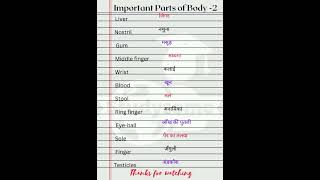 Important Parts of Body -2
Liver जिगर
Nostril नथुना
Gum मसूड़ा
Middle finger मध्यमा
Wrist कलाई
Blood खून
Stool मल
Ring finger अनामिका
Eye-ball आँख की पुतली
Sole पैर का तलवा
Finger अँगुली
Testicles अंडकोष
Thanks for watching